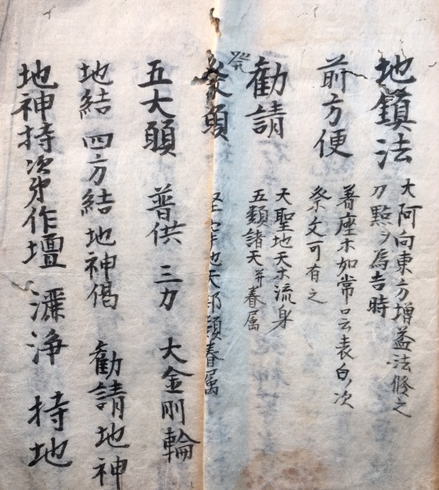 地鎮法 大阿向東方増益法修之
刀點ヲ為吉時
前方便 着座等如常 云表白 次
祭文可有之
勸請 大聖地天等流身
五類諸天并眷属
發願 地天部類眷属
五大願 普供 三力 大金剛輪
地結 四方結 地神偈 勸請地神
地神持次第作壇 灑浄 持地